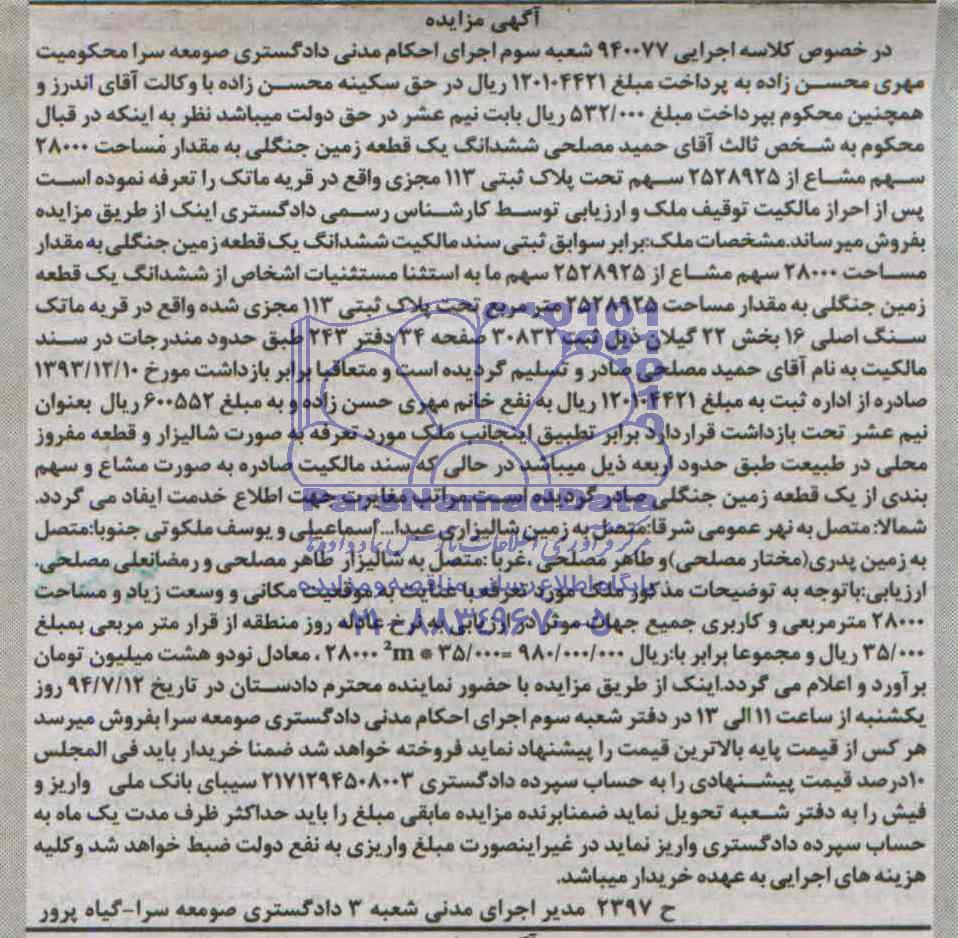 آگهی مزایده
در خصوص کلاسه اجرایی ۹۴۰۰۷۷ شعبه سوم اجرای احکام مدنی دادگستری صومعه سرا محکومیت
مهری محسن زاده به پرداخت مبلغ ۱۲۰۱۰۴۴۲۱ ریال در حق سکینه محسن زاده با وکالت آقای اندرز و
همچنین محکوم بپرداخت مبلغ ۵۳۲/۰۰۰ ریال بابت نیم عشر در حق دولت میباشد نظر به اینکه در قبال
محکوم به شخص ثالث آقای حمید مصلحی ششدانگ یک قطعه زمین جنگلی به مقدار مساحت ۲۸۰۰۰
سهم مشاع از ۲۵۲۸۹۲۵ سهم تحت پلاک ثبتی ۱۱۳ مجزی واقع در قریه ماتک را تعرفه نموده است
پس از احراز مالکیت توقیف ملک و ارزیابی توسط کارشناس رسمی دادگستری اینک از طریق مزایده
بفروش میرساند.مشخصات ملک:برابر سوابق ثبتی سند مالکیت ششدانگ یک قطعه زمین جنگلی به مقدار
مساحت ۲۸۰۰۰ سهم مشاع از ۲۵۲۸۹۲۵ سهم ما به استثنا مستثنیات اشخاص از ششدانگ یک قطعه
زمین جنگلی به مقدار مساحت ۲۵۲۸۹۲۵ متر مربع تحت پلاک ثبتی ۱۱۳ مجزی شده واقع در قریه ماتک
سنگ اصلی ۱۶ بخش ۲۲ گیلان ذیل ثبت ۳۰۸۳۲ صفحه ۳۴ دفتر ۲۴۳ طبق حدود مندرجات در سند
مالکیت به نام آقای حمید مصلحی صادر و تسلیم گردیده است و متعاقبا برابر بازداشت مورخ ۱۳۹۳/۱۲/۱۰
صادره از اداره ثبت به مبلغ ۱۲۰۱۰۴۴۲۱ ریال به نفع خانم مهری حسن زاده و به مبلغ ۶۰۰۵۵۲ ریال بعنوان
نیم عشر تحت بازداشت قراردارد برابر تطبیق اینجانب ملک مورد تعرفه به صورت شالیزار و قطعه مفروز
محلی در طبیعت طبق حدود اربعه ذیل میباشد در حالی که سند مالکیت صادره به صورت مشاع و سهم
بندی از یک قطعه زمین جنگلی صادر گردیده است مراتب مغایرت جهت اطلاع خدمت ایفاد می گردد.
شمالا: متصل به نهر عمومی شرقا:متصل به زمین شالیزاری عبدا.. اسماعیلی و یوسف ملکوتی جنوبا:متصل
به زمین پدری(مختار مصلحی)و طاهر مصلحی ،غربا :متصل به شالیزار طاهر مصلحی و رمضانعلی مصلحی.
ارزیابی:باتوجه به توضیحات مذکور ملک مورد تعرفه با عنایت به موقعیت مکانی و وسعت زیاد و مساحت
۲۸۰۰۰ مترمربعی و کاربری جمیع جهات موثر در ارزیابی به نرخ عادله روز منطقه از قرار متر مربعی بمبلغ
۳۵/۰۰۰ ریال و مجموعا برابر با:ریال ۹۸۰/۰۰۰/۰۰۰ =۳۵/۰۰۰ * m² ۲۸۰۰۰ ، معادل نودو هشت میلیون تومان
برآورد و اعلام می گردد.اینک از طریق مزایده با حضور نماینده محترم دادستان در تاریخ ۹۴/۷/۱۲ روز
یکشنبه از ساعت ۱۱ الی ۱۳ در دفتر شعبه سوم اجرای احکام مدنی دادگستری صومعه سرا بفروش میرسد
هر کس از قیمت پایه بالاترین قیمت را پیشنهاد نماید فروخته خواهد شد ضمنا خریدار باید فی المجلس
۱۰درصد قیمت پیشنهادی را به حساب سپرده دادگستری ۲۱۷۱۲۹۴۵۰۸۰۰۳ سیبای بانک ملی واریز و
فیش را به دفتر شعبه تحویل نماید ضمنابرنده مزایده مابقی مبلغ را باید حداکثر ظرف مدت یک ماه به
حساب سپرده دادگستری واریز نماید در غیراینصورت مبلغ واریزی به نفع دولت ضبط خواهد شد وکلیه
هزینه های اجرایی به عهده خریدار میباشد.
ح ۲۳۹۷ مدیر اجرای مدنی شعبه ۳ دادگستری صومعه سرا-گیاه پرور
ParsNamadData
مرکز فرآوری اطلاعات پارس نماد داده ها
پایگاه اطلاع رسانی مناقصه و مزایده
۰۲۱-۸۸۳۴۹۶۷۰-۵